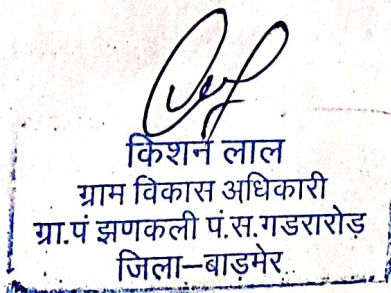 किशन लाल
ग्राम विकास अधिकारी
ग्रा.पं झणकली पं.स.गडरारोड़
जिला–बाड़मेर